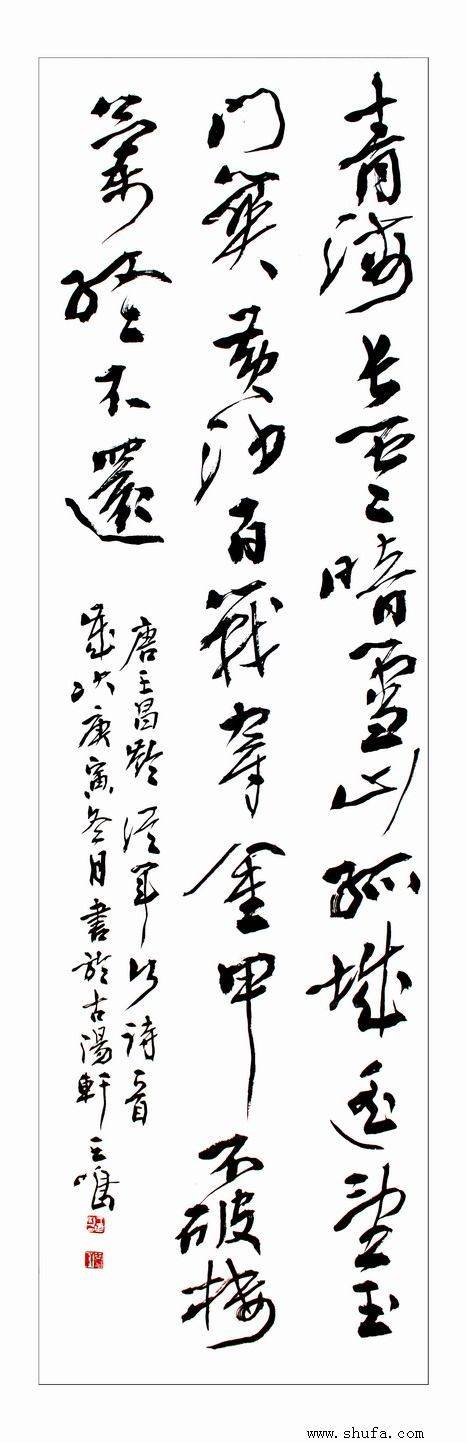 青海长云暗雪山孤城遥望玉
门关黄沙百战穿金甲不破楼
兰终不還
唐王昌龄從軍行诗一首
歲次庚寅冬月書於古湯軒王鳴
www.shufa.com